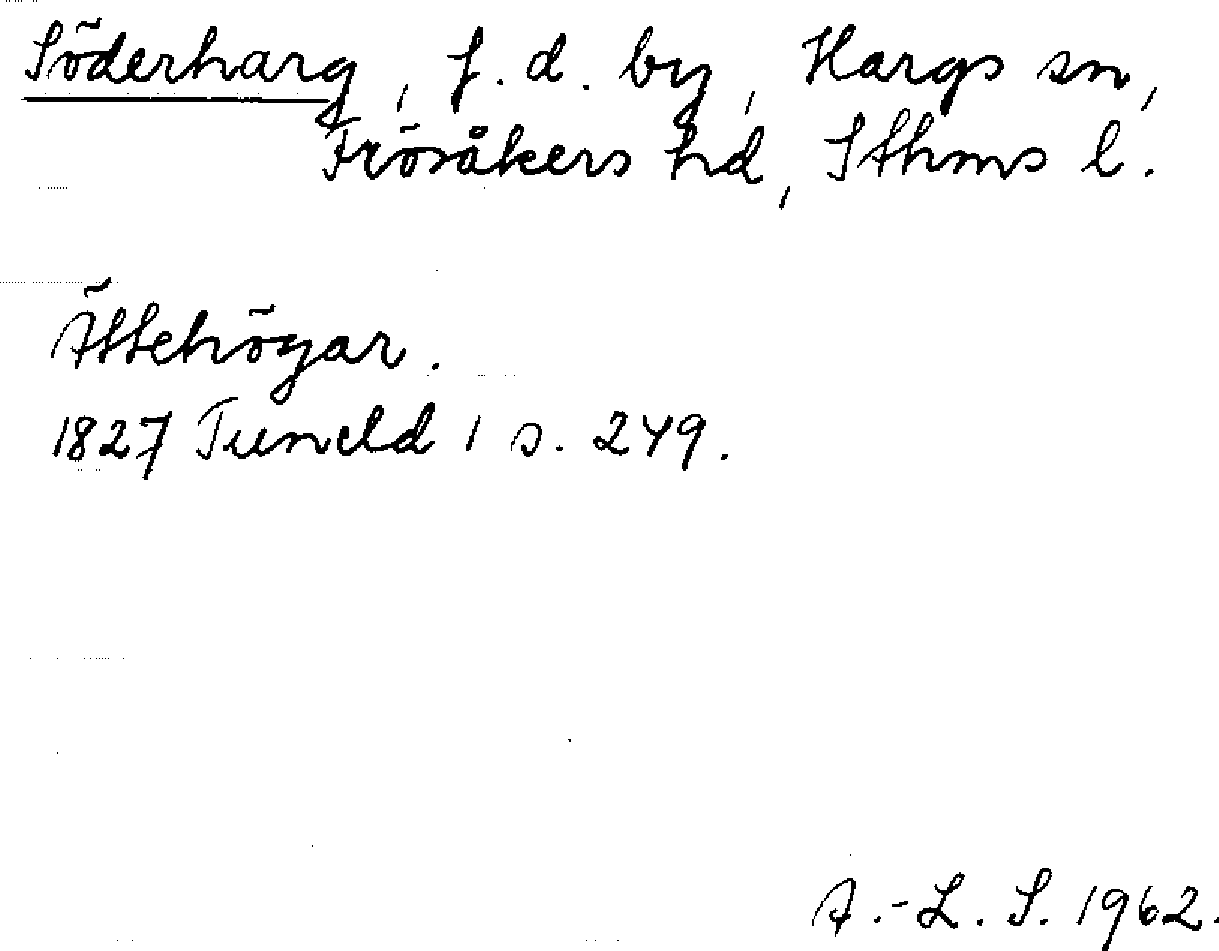 Söderharg, f. d. by, Hargs sn,
Frösåkers hd, Sthms l.
Ättehögar.
1827 Tuneld 1 s. 249.
A.-L. S. 1962.